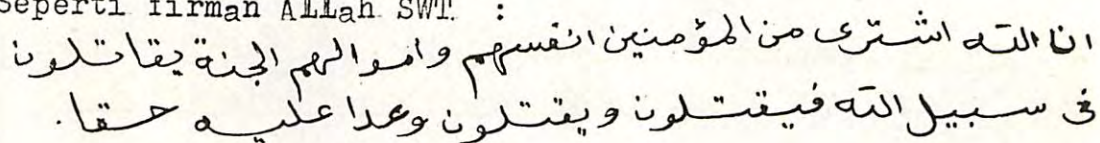 Seperti firman ALLah SWT. :
ان الله اشترى من المؤمنين انفسهم وامـوالهم الجنة يقاتلون
فى سبيل الله فيقتلون ويقتلون وعدا عليه حقا.